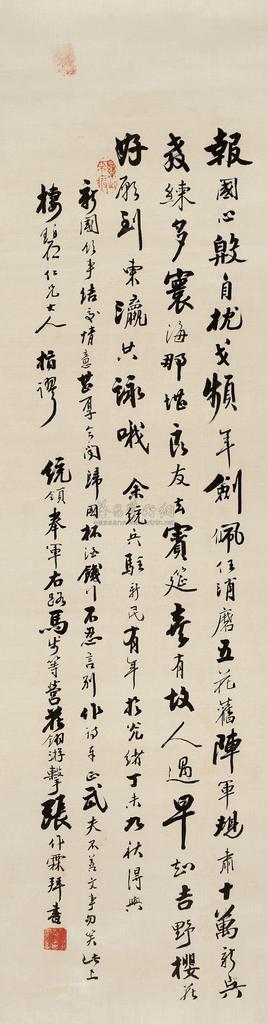 報國心殷自枕戈頻年劍佩任消磨五花舊陣軍規肅十萬新兵
教練多寰海那堪良友去賓筵喜有故人過早知吉野櫻花
好願到東瀛共詠哦 余統兵駐新民有年於光緒丁未九秋得與
新國仁兄結交情意甚厚今聞歸國杯酒餞行不忍言別作詩奉正武夫不善文事勿笑此上
棲碧仁兄大人指謬 統領奉軍右路馬步等營花翎游擊張作霖拜書